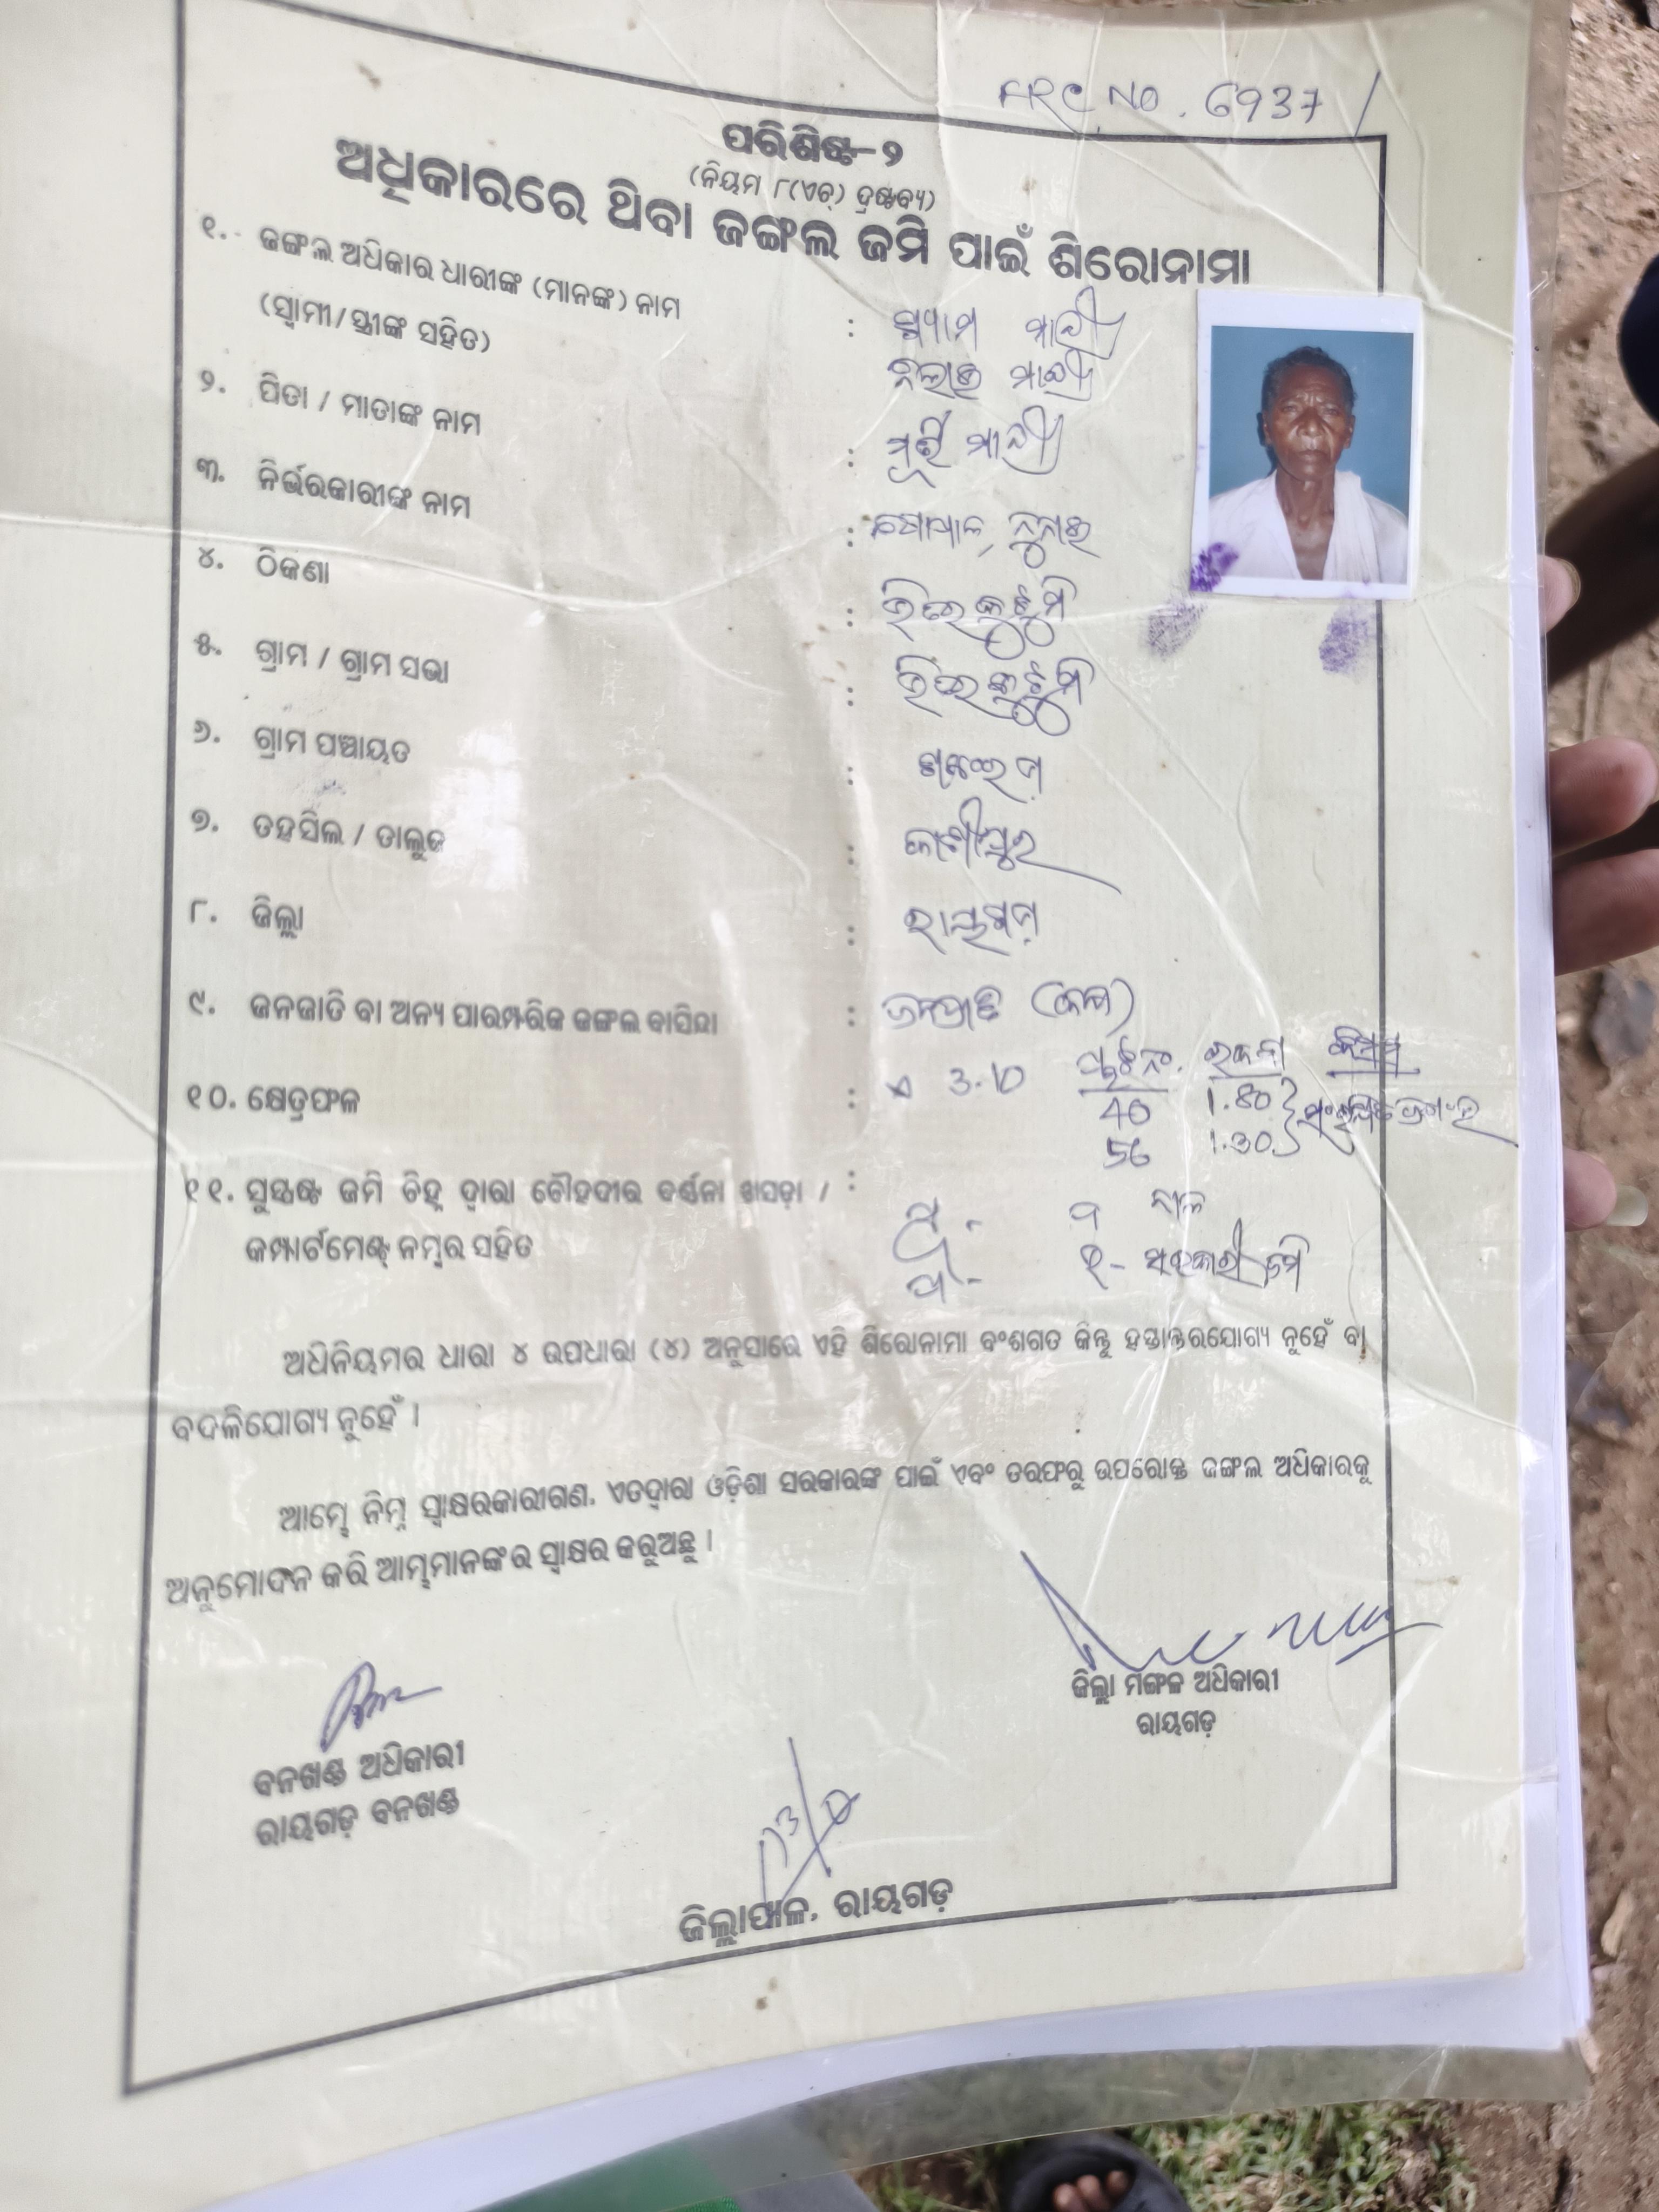 FRC NO. 6937
ପରିଶିଷ୍ଟ-୨
(ନିୟମ ୮(ଏଚ୍) ଦ୍ରଷ୍ଟବ୍ୟ)
ଅଧିକାରରେ ଥିବା ଜଙ୍ଗଲ ଜମି ପାଇଁ ଶିରୋନାମା
୧. ଜଙ୍ଗଲ ଅଧିକାର ଧାରୀଙ୍କ (ମାନଙ୍କ) ନାମ : ଶ୍ୟାମ ମାଝୀ
(ସ୍ୱାମୀ/ସ୍ତ୍ରୀଙ୍କ ସହିତ) ମାଝୀ
୨. ପିତା / ମାତାଙ୍କ ନାମ : ମାଝୀ
୩. ନିର୍ଭରକାରୀଙ୍କ ନାମ :
୪. ଠିକଣା :
୫. ଗ୍ରାମ / ଗ୍ରାମ ସଭା :
୬. ଗ୍ରାମ ପଞ୍ଚାୟତ :
୭. ତହସିଲ / ତାଲୁକ : କାଶୀପୁର
୮. ଜିଲ୍ଲା : ରାୟଗଡ଼
୯. ଜନଜାତି ବା ଅନ୍ୟ ପାରମ୍ପରିକ ଜଙ୍ଗଲ ବାସିନ୍ଦା : ଜନଜାତି (କନ୍ଧ)
୧୦. କ୍ଷେତ୍ରଫଳ : ଏ 3.10 ପ୍ଲଟ ନଂ. ରକବା କିସମ
40 1.80
56 1.30
୧୧. ସୁସ୍ପଷ୍ଟ ଜମି ଚିହ୍ନ ଦ୍ୱାରା ଚୌହଦୀର ବର୍ଣ୍ଣନା ଖସଡ଼ା / :
କମ୍ପାର୍ଟମେଣ୍ଟ ନମ୍ବର ସହିତ
ଦ - ସରକାରୀ ଜମି
ଅଧିନିୟମର ଧାରା ୪ ଉପଧାରା (୪) ଅନୁସାରେ ଏହି ଶିରୋନାମା ବଂଶଗତ କିନ୍ତୁ ହସ୍ତାନ୍ତରଯୋଗ୍ୟ ନୁହେଁ ବା
ବଦଳିଯୋଗ୍ୟ ନୁହେଁ ।
ଆମ୍ଭେ ନିମ୍ନ ସ୍ୱାକ୍ଷରକାରୀଗଣ, ଏତଦ୍ୱାରା ଓଡ଼ିଶା ସରକାରଙ୍କ ପାଇଁ ଏବଂ ତରଫରୁ ଉପରୋକ୍ତ ଜଙ୍ଗଲ ଅଧିକାରକୁ
ଅନୁମୋଦନ କରି ଆମ୍ଭମାନଙ୍କର ସ୍ୱାକ୍ଷର କରୁଅଛୁ ।
ଜିଲ୍ଲା ମଙ୍ଗଳ ଅଧିକାରୀ
ରାୟଗଡ଼
ବନଖଣ୍ଡ ଅଧିକାରୀ
ରାୟଗଡ଼ ବନଖଣ୍ଡ
ଜିଲ୍ଲାପାଳ, ରାୟଗଡ଼